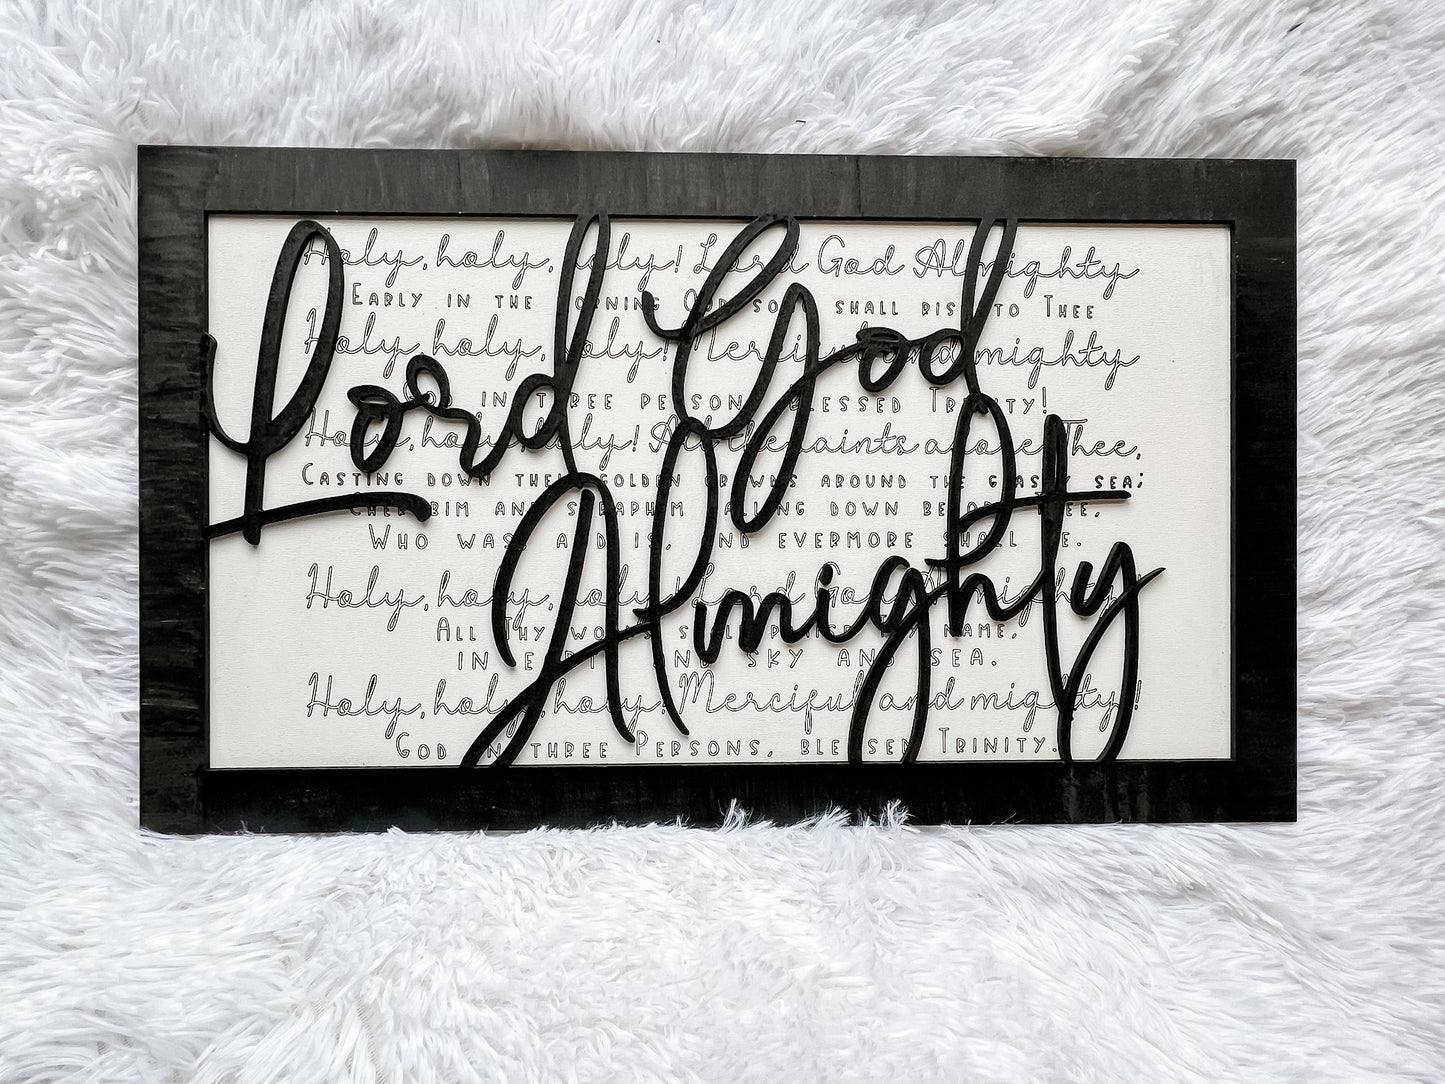 Lord God
Almighty
Holy, holy, holy! Lord God Almighty
Early in the morning Our song shall rise to Thee
Holy, holy, holy! Merciful and mighty
God in three persons Blessed Trinity!
Holy, holy, holy! All the saints adore Thee,
Casting down their golden crowns around the glassy sea;
Cherubim and seraphim falling down before Thee,
Who was, and is, and evermore shall be.
Holy, holy, holy! Lord God Almighty
All Thy works shall praise Thy name,
in earth and sky and sea.
Holy, holy, holy! Merciful and mighty!
God in three Persons, blessed Trinity.